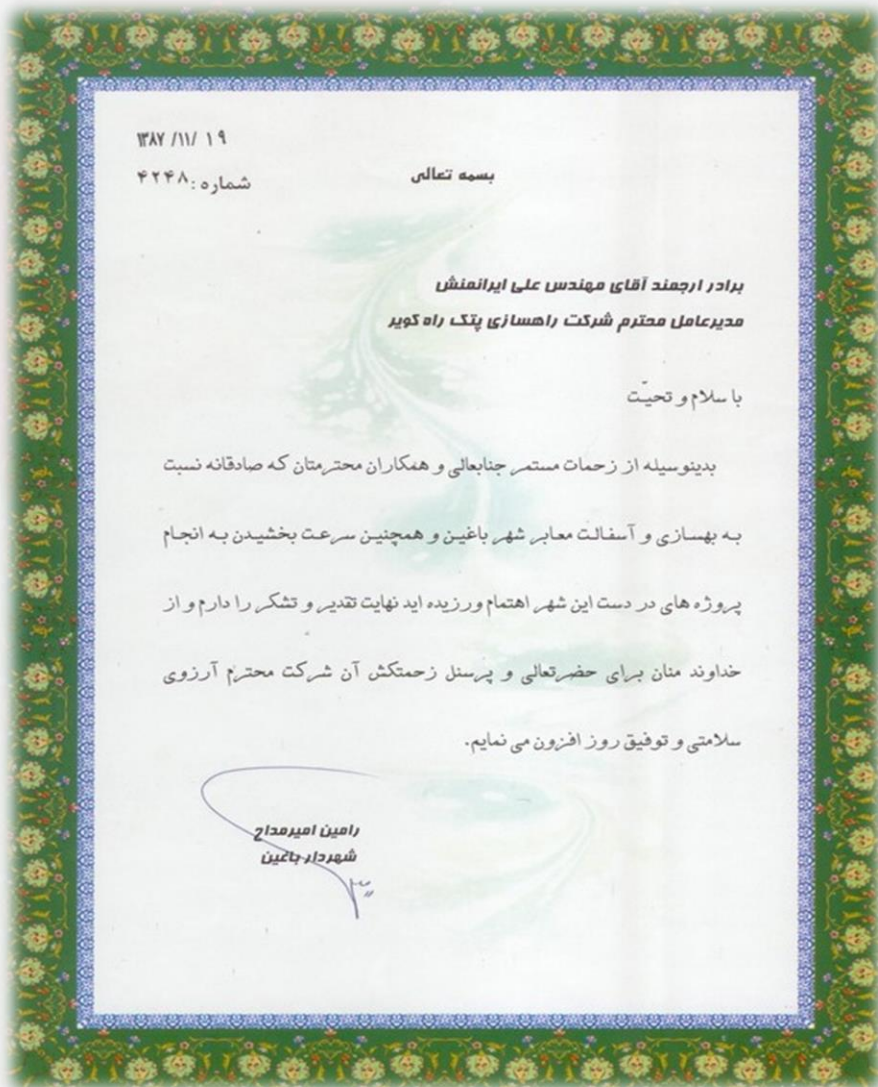 ۱۳۸۷ /۱۱/ ۱۹
شماره :۴۲۴۸
بسمه تعالی
برادر ارجمند آقای مهندس علی ایرانمنش
مدیرعامل محترم شرکت راهسازی پتک راه کویر
با سلام و تحیّت
بدینوسیله از زحمات مستمر جنابعالی و همکاران محترمتان که صادقانه نسبت
به بهسازی و آسفالت معابر شهر باغین و همچنین سرعت بخشیدن به انجام
پروژه های در دست این شهر اهتمام ورزیده اید نهایت تقدیر و تشکر را دارم و از
خداوند منان برای حضرتعالی و پرسنل زحمتکش آن شرکت محترم آرزوی
سلامتی و توفیق روز افزون می نمایم.
رامین امیرمداح
شهردار باغین